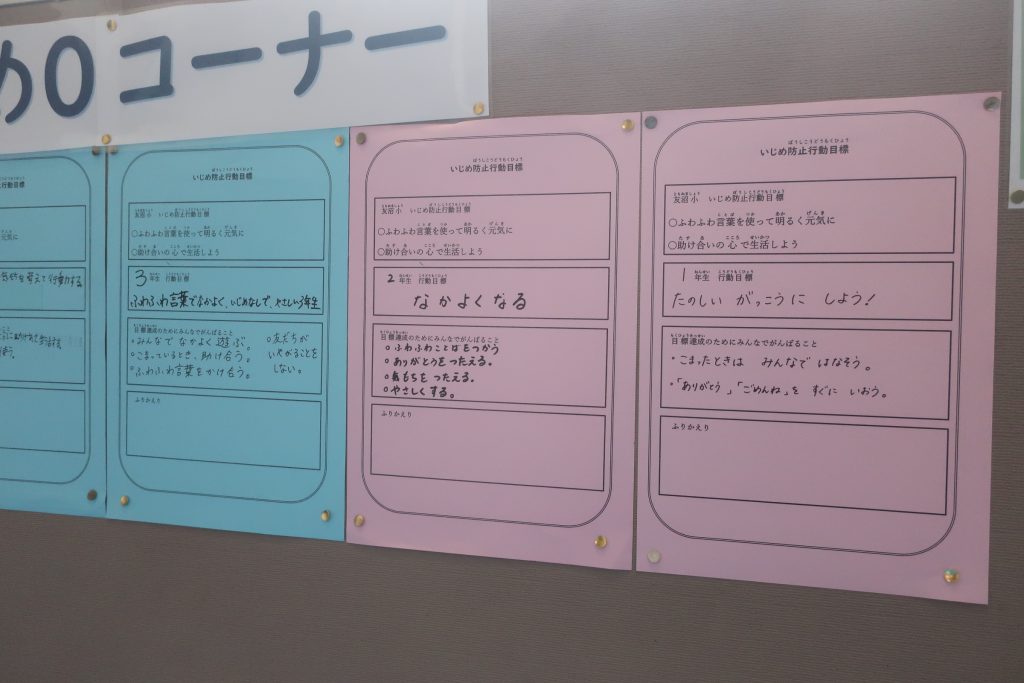 め0コーナー
止行動目標
元気に
いじめ防止行動目標
ぼうしこうどうもくひょう
友沼小 いじめ防止行動目標
○ふわふわ言葉を使って明るく元気に
○助け合いの心で生活しよう
3年生 行動目標
ふわふわ言葉でなかよく、いじめなしで、やさしい3年生
目標達成のためにみんなでがんばること
○みんなでなかよく遊ぶ。
○こまっているとき、助け合う。
○ふわふわ言葉をかけ合う。
○友だちが
いやがることを
しない。
ふりかえり
ぼうしこうどうもくひょう
いじめ防止行動目標
友沼小 いじめ防止行動目標
○ふわふわ言葉を使って明るく元気に
○助け合いの心で生活しよう
2年生 行動目標
なかよくなる
目標達成のためにみんなでがんばること
○ふわふわことばをつかう
○ありがとうをつたえる。
○気もちをつたえる。
○やさしくする。
ふりかえり
ぼうしこうどうもくひょう
いじめ防止行動目標
友沼小 いじめ防止行動目標
○ふわふわ言葉を使って明るく元気に
○助け合いの心で生活しよう
1年生 行動目標
たのしい がっこうに しよう!
目標達成のためにみんなでがんばること
・こまったときは みんなで はなそう。
・「ありがとう」「ごめんね」を すぐに いおう。
ふりかえり